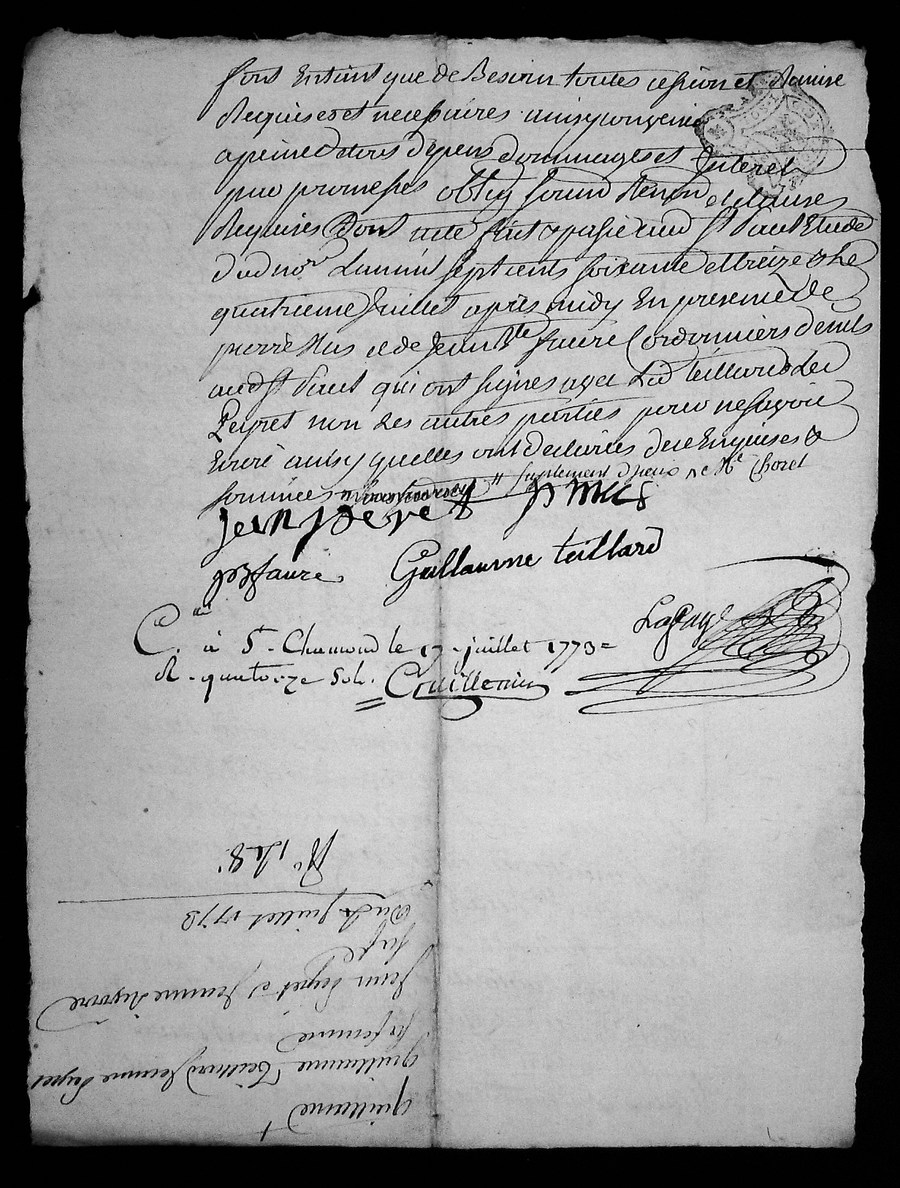 font Entant que de Besoin toutes cession et Remise
Requises et necessaires ainsy convenu
a peine de tous depens dommages et Interet
par promesses oblig soum Renon et clauses
Requises Dont acte fait et passé aud st Paul Etude
dud nore Lan mil sept cents soixante et treize & le
quatrieme juillet apres midy En presence de
pierre Mus et de jean Bte faure Cordonniers de mts
aud st Paul qui ont signes avec Led teillard & led
Peyret non les autres parties pour ne sçavoir
Ecrire ainsy quelles ont declarées de ce Enquises &
sommées supplement d'jceux Me Thoret
jean peyret p mus
jb faure Guillaume teillard
Lafay
C. à St. Chamond le 17 juillet 1773 =
R. quatorze sols.
= Couillerin
No 148.
Du 4 juillet 1773
Jean Peyret & Jeanne
sa femme
Guillaume Teillard Jeanne Peyret
quittance